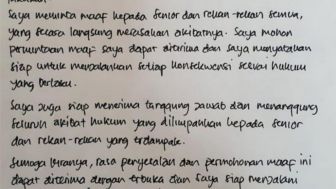 Saya meminta maaf kepada senior dan rekan-rekan semua,
yang secara langsung merasakan akibatnya. Saya mohon
permohonan maaf saya dapat diterima dan saya menyatakan
siap untuk menjalankan setiap konsekwensi sesuai hukum
yang berlaku.
Saya juga siap menerima tanggung jawab dan menanggung
seluruh akibat hukum yang dilimpahkan kepada senior
dan rekan-rekan yang terdampak.
Semoga kiranya, rasa penyesalan dan permohonan maaf ini
dapat diterima dengan terbuka dan saya siap menjalani